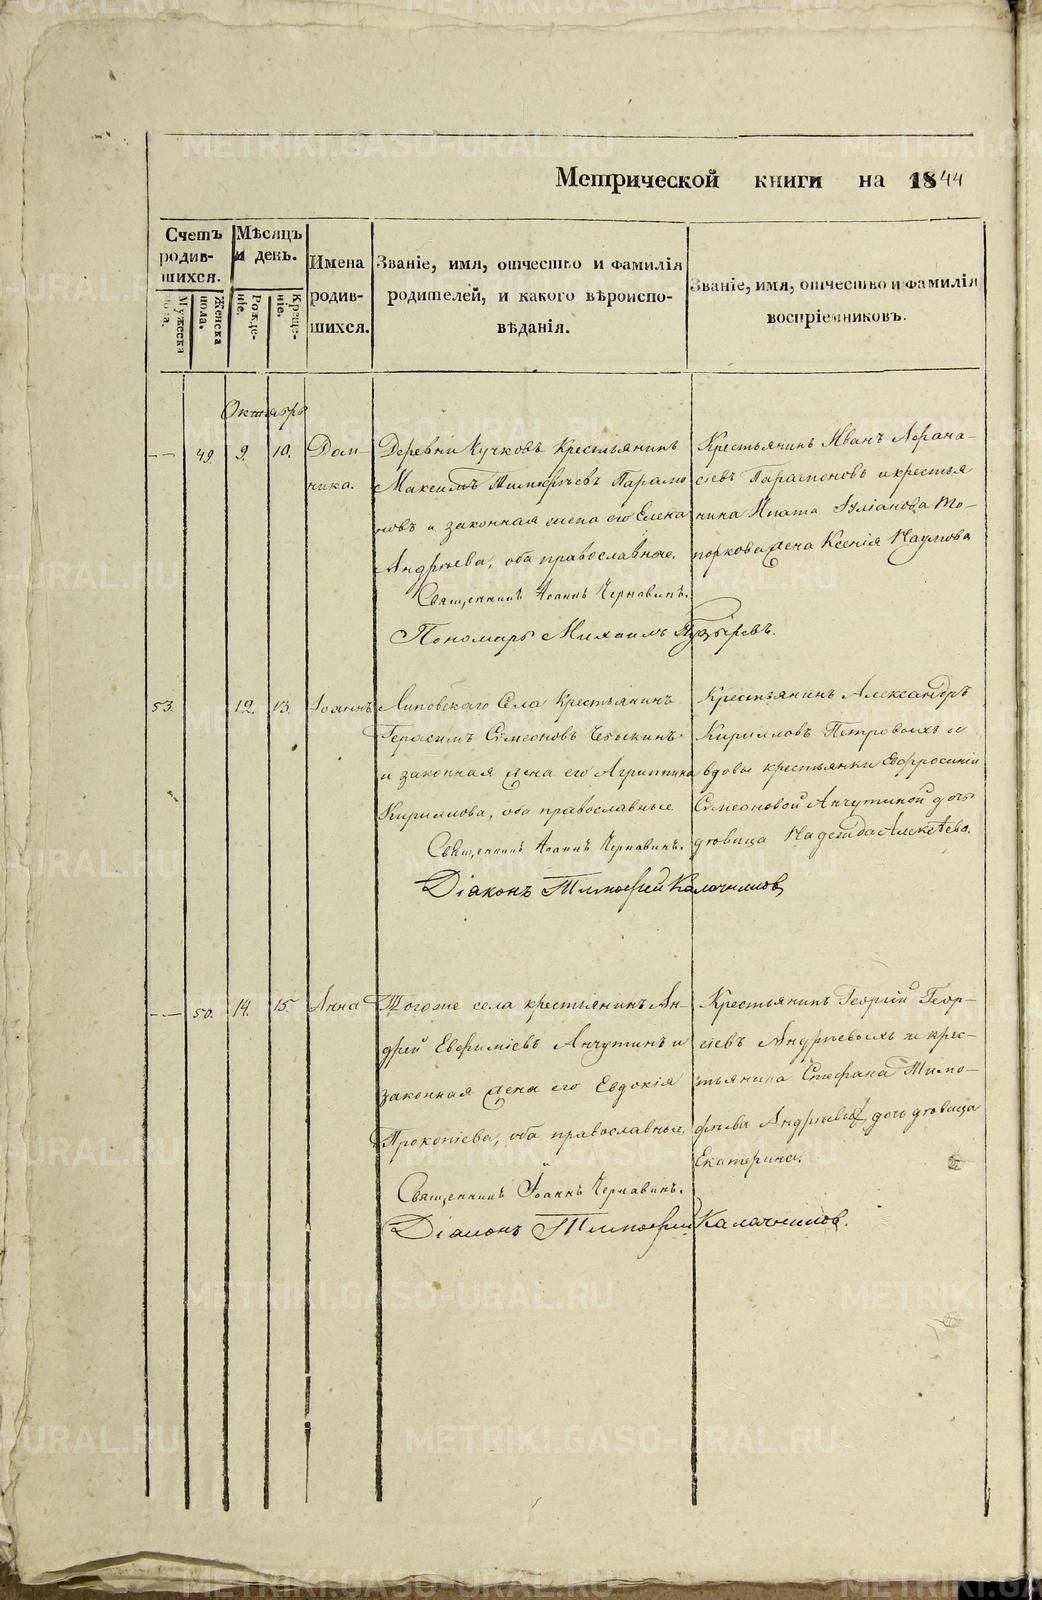 Метрической книги на 1844
Счетъ родив-шихся.
Мужеска пола.
Женска пола.
Мѣсяцъ и день.
Рожде-ніе.
Креще-ніе.
Имена
родив-
шихся.
Званіе, имя, отчество и фамилія
родителей, и какого вѣроиспо-
вѣданія.
Званіе, имя, отчество и фамилія
воспріемниковъ.
Октябрь
49. 9. 10. Дом-
ника.
Деревни Кучковъ Крестьянинъ
Максимъ Тимоѳеевъ Парамо
новъ и законная жена его Елена
Андреева, оба православные.
Священникъ Іоаннъ Чернавинъ.
Пономарь Михаилъ Пузыревъ.
Крестьянинъ Иванъ Аѳана-
сіевъ Парамоновъ и крестья
нина Ипата Іуліанова То-
поркова жена Ксенія Наумова
53. 12. 13. Іоаннъ
Липовскаго Села Крестьянинъ
Герасимъ Симеоновъ
и законная жена его Агриппина
Кириллова, оба православные
Священникъ Іоаннъ Чернавинъ.
Діаконъ Тимоѳей Калачниковъ
Крестьянинъ Александръ
Кирилловъ Петровыхъ и
вдовы крестьянки Евфросиніи
Симеоновой Анчутиной дочь
дѣвица Надежда Алексѣева.
50. 14. 15. Анна
Тогоже села крестьянинъ Ан-
дрей Евфиміевъ Анчутинъ и
законная жена его Евдокія
Прокопіева, оба православные.
Священникъ Іоаннъ Чернавинъ.
Діаконъ Тимоѳей Калачниковъ.
Крестьянинъ Георгій Геор-
гіевъ Андреевыхъ и крес-
тьянина Стефана Тимо-
фѣева дочь дѣвица
Екатерина.
METRIKI.GASO-URAL.RU